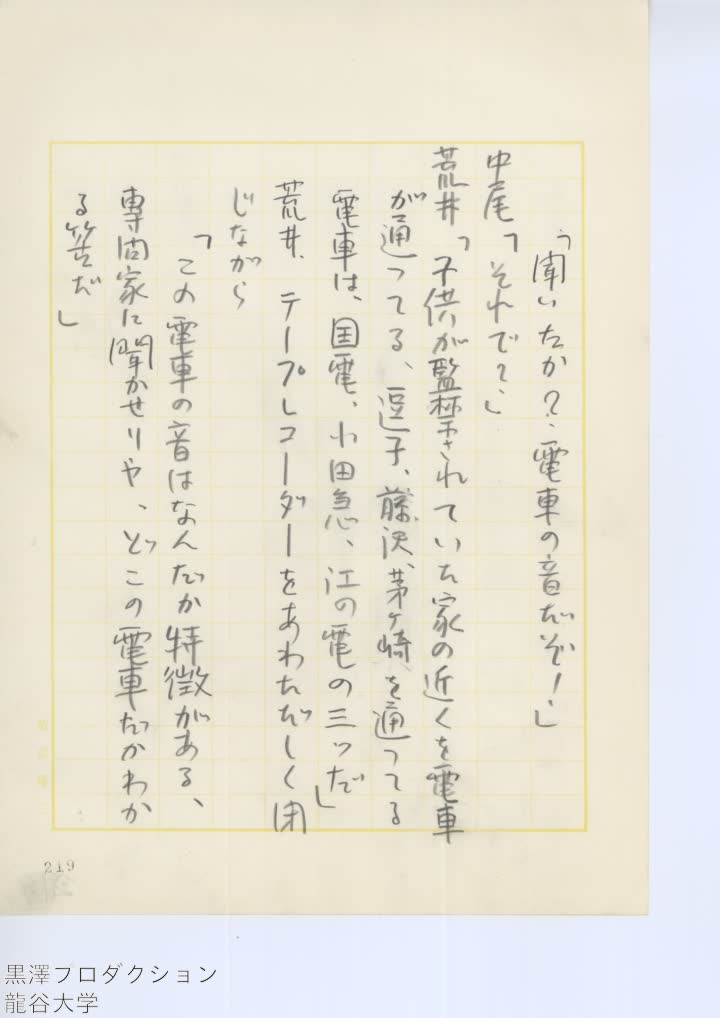 「聞いたか?、電車の音だぞ!」
中尾「それで?」
荒井「子供が監禁されていた家の近くを電車
が通ってる、逗子、藤沢、茅ヶ崎を通ってる
電車は、国電、小田急、江の電の三ツだ」
荒井、テープレコーダーをあわただしく閉
じながら
「この電車の音はなんだか特徴がある、
専问家に聞かせりや、どこの電車だかわか
る筈だ」
219
黒澤プロダクション
龍谷大学